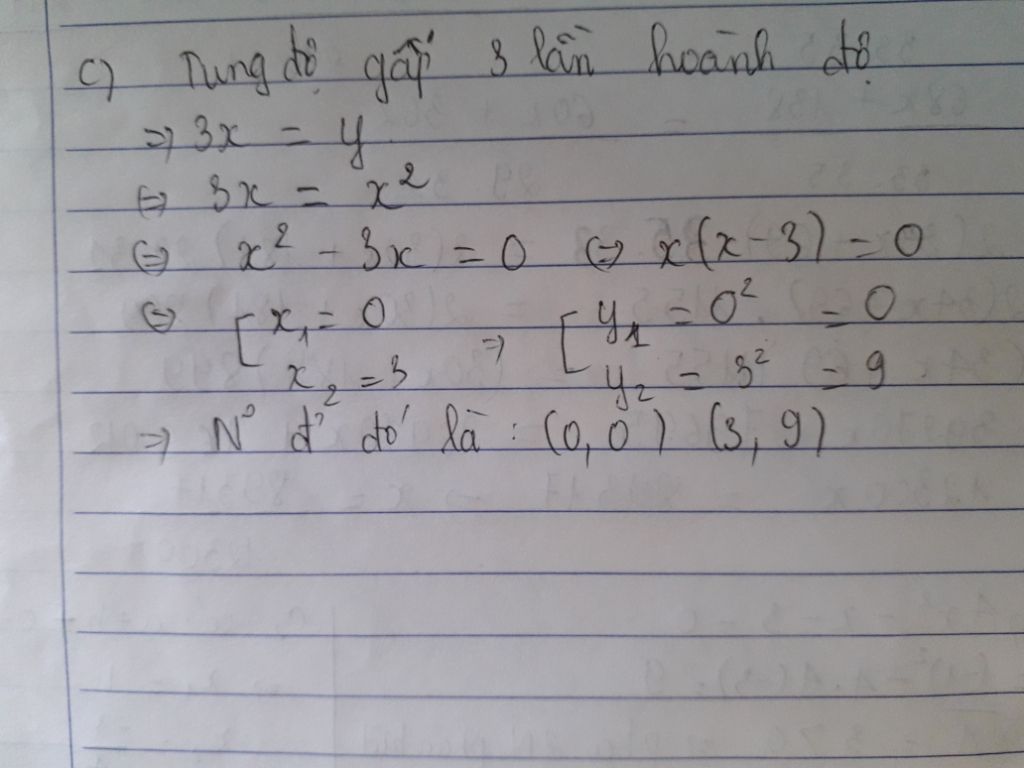 c) Tung độ gấp 3 lần hoành độ
=> 3x = y
<=> 3x = x²
<=> x² - 3x = 0 <=> x(x-3) = 0
<=> [ x₁ = 0 => [ y₁ = 0² = 0
x₂ = 3 y₂ = 3² = 9
=> N° đ' đó là : (0,0) (3,9)